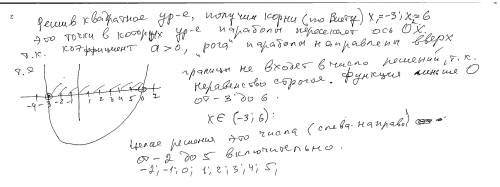 Решив квадратное ур-е, получим корни (по Виету) x₁=-3; x₂=6
это точки в которых ур-е параболы пересекает ось OX,
т.к. коэффициент a>0, "рога" параболы направлены вверх
т.е
границы не входят в число решений, т.к.
неравенство строгое. Функция меньше 0
от -3 до 6.
x∈(-3; 6).
-4 -3 -2 -1
Целые решения это числа (слева-направо)
от -2 до 5 включительно.
-2; -1; 0; 1; 2; 3; 4; 5;